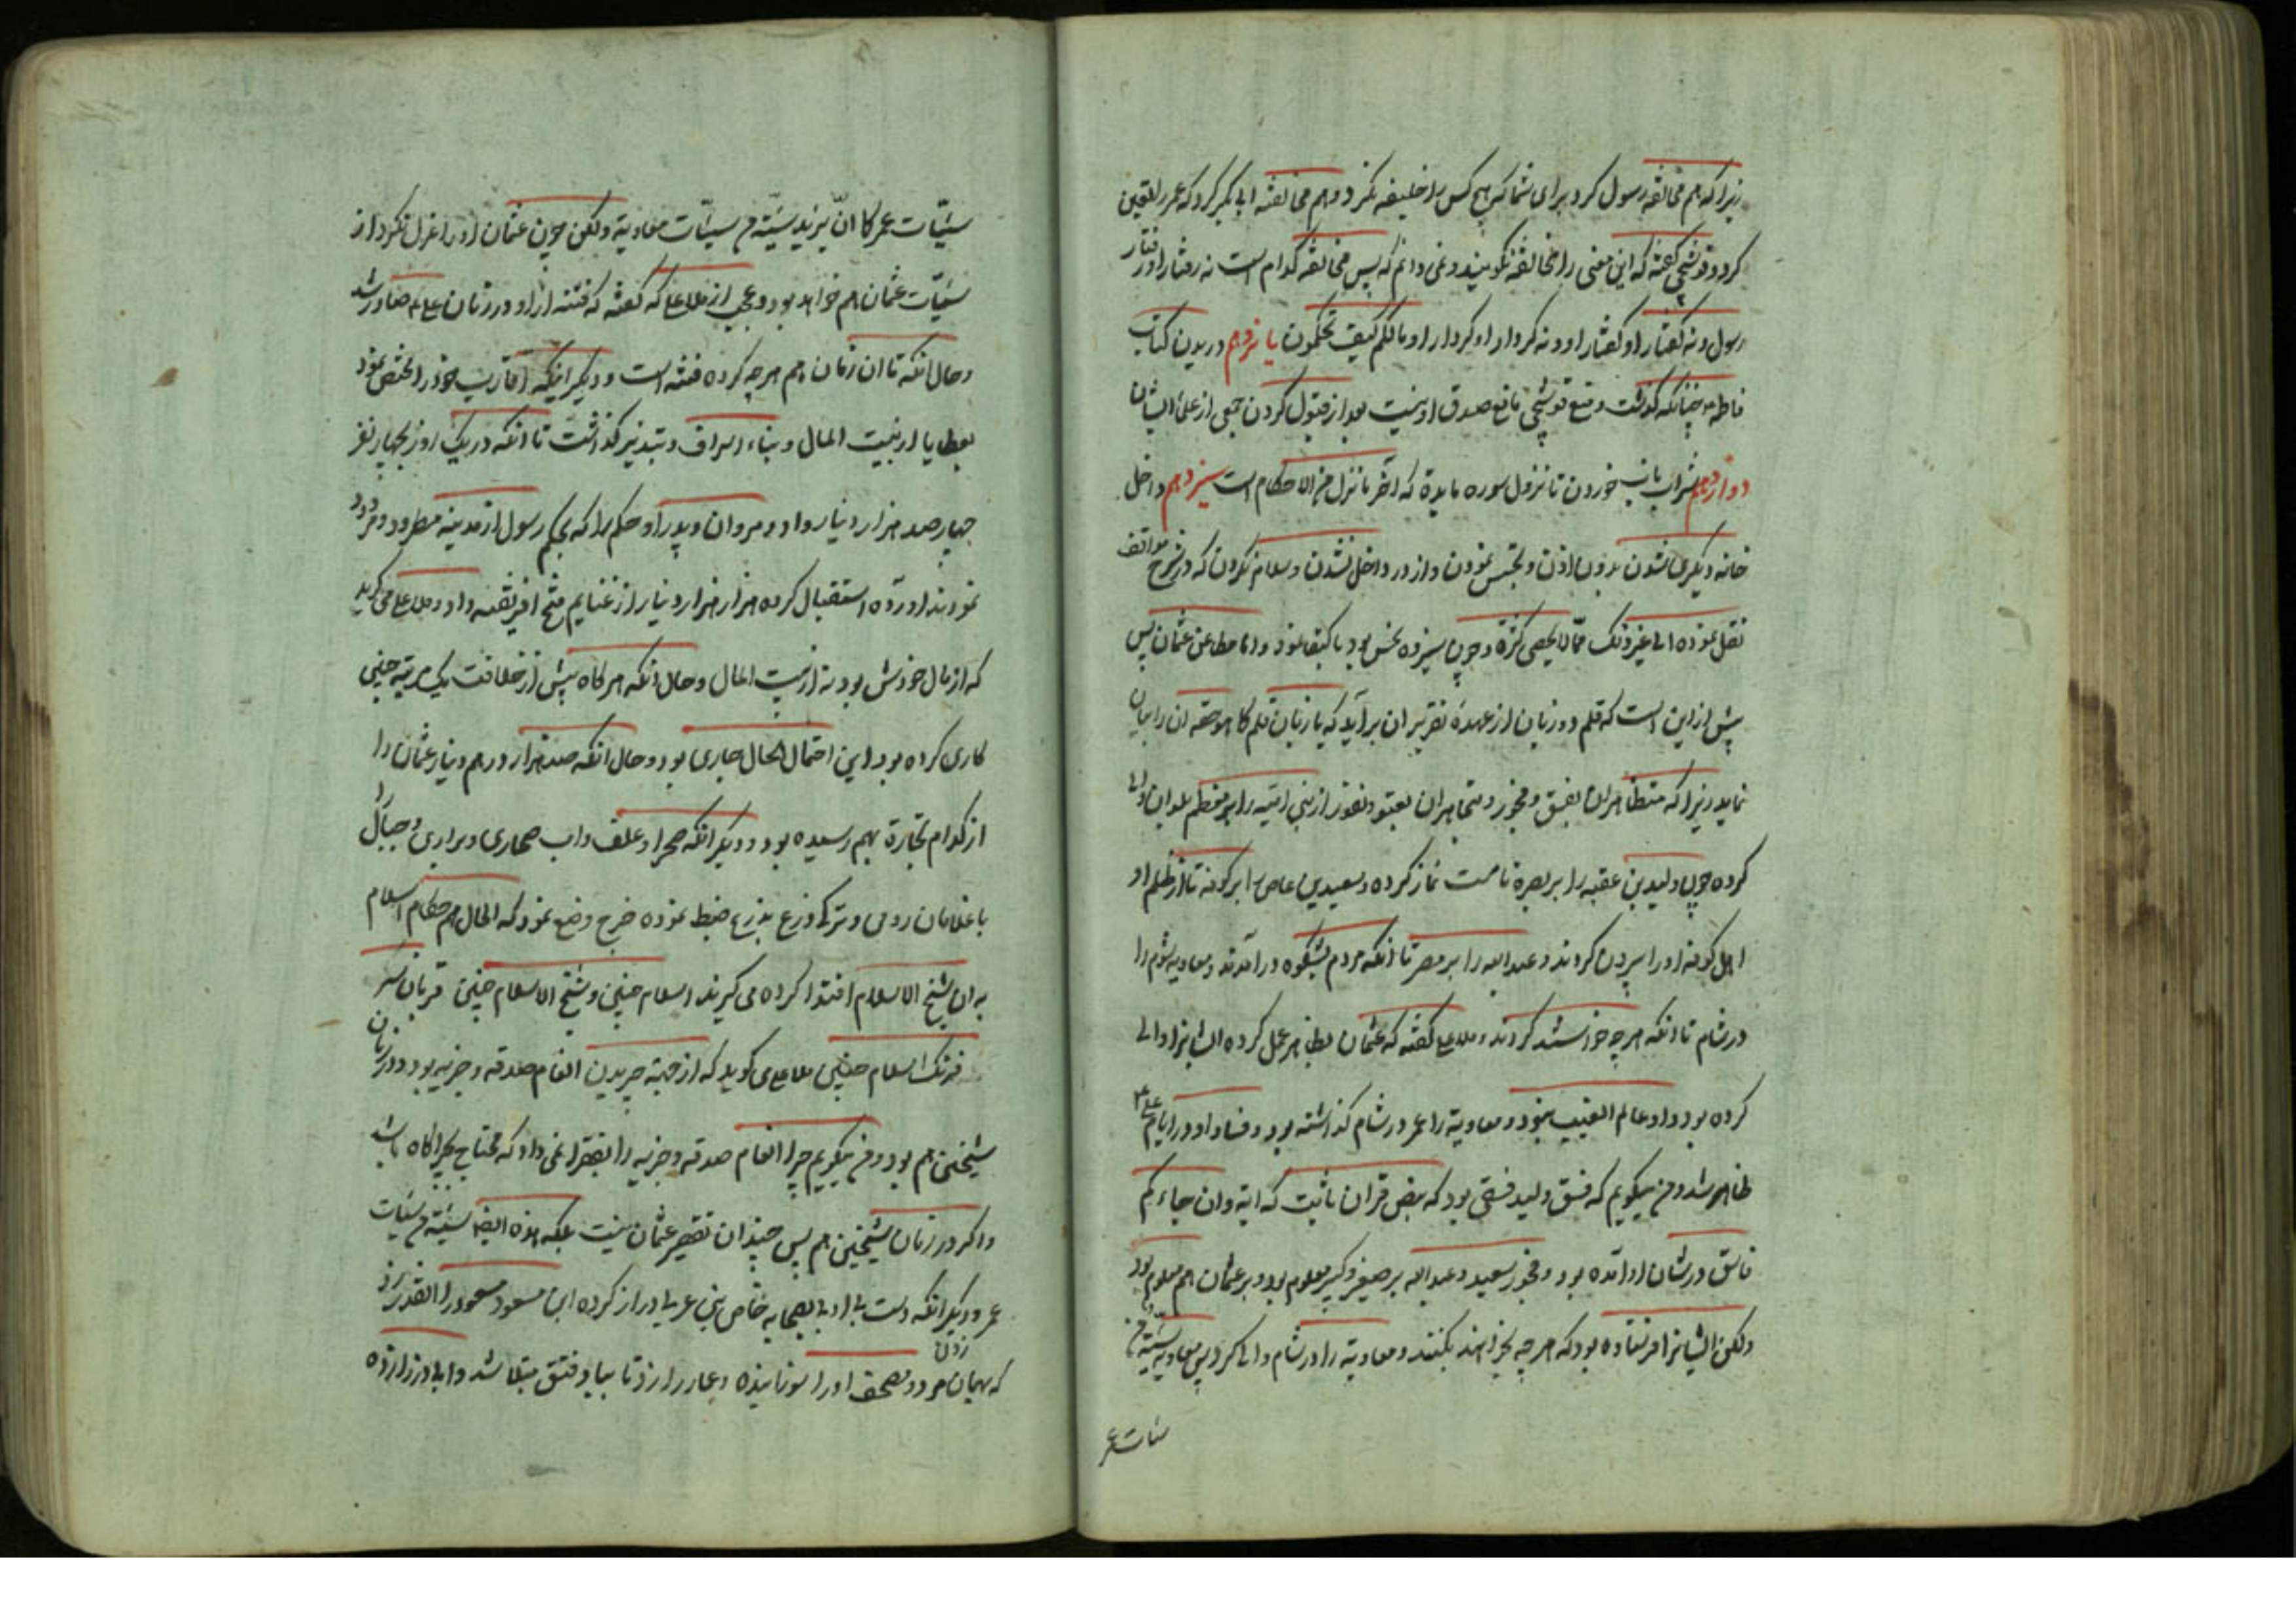 زیرا که هم مخالفة رسول کرد برای شما که هیچ کس را خلیفه نکرد و هم مخالفة ابی بکر کرد که عمر را تعیین
کرد و قوشچی گفته که این معنی را مخالفة نگویند و نمی دانم که پس مخالفة کدام است نه رفتار او رفتار
رسول و نه گفتار او گفتار او و نه کردار او کردار او مالکم کیف تحکمون یازدهم دریدن کتاب
فاطمه چنانکه گذشت و منع قوشچی مانع صدق او نیست بعد از قبول کردن جمعی از علمای ایشان
دوازدهم شراب ناب خوردن تا نزول سوره مایدة که آخر ما نزل من الاحکام است سیزدهم داخل
خانه دیگری شدن بدون اذن و تجسس نمودن و از در داخل نشدن و سلام نکردن که در شرح مواقف
نقل نموده الی غیر ذلک مما لا یحصی کثرة و چون سیزده نحس بود باکتفا نمود و اما مطاعن عثمان پس
پیش از این است که قلم دو زبان از عهده تقریر ان برآید که با زبان قلم کما هو حقه ان را بیان
نماید زیرا که متظاهران بفسق و فجور و متجاهران بعتو و نفور از بنی امیه را بر معظم بلدان والی
کرده چون ولید بن عقبه را بر بصره تا مست نماز کرده و سعید بن عاص را بر کوفه تا از ظلم او
اهل کوفه او را بیرون کردند و عبدالله را بر مصر تا انکه مردم بشکوه درآمدند و معاویه شوم را
در شام تا انکه هر چه خواستند کردند و ملا علی گفته که عثمان بظاهر عمل کرده ایشانرا والی
کرده بود و او عالم الغیب نبود و معاویة را عمر در شام گذاشته بود و فساد او در ایام علی ع
ظاهر شد و من میگویم که فسق ولید فسقی بود که بنص قران ثابت که ایة وان جاءکم
فاسق در شان او آمده بود و فجور سعید و عبدالله بر صغیر و کبیر معلوم بود و بر عثمان هم معلوم بود
ولکن ایشانرا فرستاده بود که هر چه بخواهند بکنند و معاویة را در شام والی کرد پس معاویه سیئة من
سیئات عمر
سیئات عمر کما ان یزید سیئة من سیئات معاویة ولکن چون عثمان او را عزل نکرد از
سیئات عثمان هم خواهد بود و عجب از ملا علی که گفته که فتنه از او در زمان علی ع صادر شد
و حال انکه تا ان زمان هم هر چه کرده فتنه است و دیگر اینکه اقارب خود را مختص نمود
بعطایا از بیت المال و بناء اسراف و تبذیر گذاشت تا انکه در یک روز بچهار نفر
چهار صد هزار دینار داد و مروان و پدر او حکم را که بحکم رسول از مدینه مطرود و مردود
نمودند آورده استقبال کرده هزار هزار دینار از غنایم فتح افریقیه داد و ملا علی می گوید
که از مال خودش بود نه از بیت المال و حال انکه هر گاه پیش از خلافت یک مرتبه چنین
کاری کرده بود این احتمال الحال جاری بود و حال انکه صد هزار درهم و دینار عثمان را
از کدام تجارة بهم رسیده بود و دیگر انکه صحرا و علف و اب صحاری و براری و جبال را
با غلامان رومی و ترکی و زرع بذرع ضبط نموده خرج وضع نمود که الحال هم حکام اسلام
به ان شیخ الاسلام اقتدا کرده می گیرند اسلام چنین و شیخ الاسلام چنین قربان سر
فرنک اسلام چنین ملا علی می گوید که از جهة چریدن انعام صدقه و جزیه بود و در زمان
شیخین هم بود و من میگویم چرا انعام صدقه و جزیه را بفقرا نمی داد که محتاج بچراگاه باشد
و اگر در زمان شیخین هم پس چندان تقصیر عثمان نیست بلکه هذه ایضا سیئة من سیئات
عمر و دیگر انکه دست بی ادبی بصحابه خاص نبی عربی دراز کرده ابن مسعود را القدر زد
که بهمان زدن مرد و مصحف او را سوزانیده و عمار را زد تا بباد فتق مبتلا شد و ابی ذر را زده